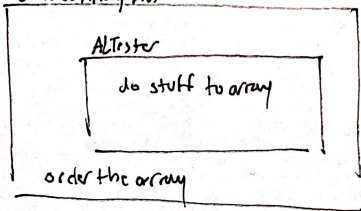 ALTester
do stuff to array
order the array